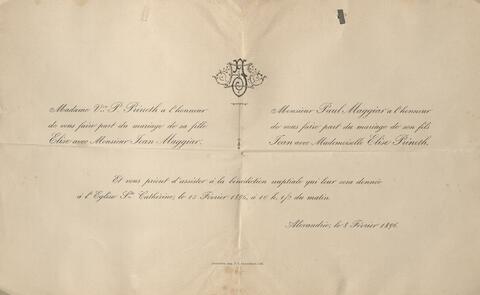 Madame Vve P. Prinoth a l'honneur
de vous faire part du mariage de sa fille
Elise avec Monsieur Jean Maggiar.
Monsieur Paul Maggiar a l'honneur
de vous faire part du mariage de son fils
Jean avec Mademoiselle Elise Prinoth.
Et vous prient d'assister à la bénédiction nuptiale qui leur sera donnée
à l'Eglise Ste Catherine, le 15 Février 1896, à 10 h. 1/2 du matin.
Alexandrie, le 8 Février 1896.